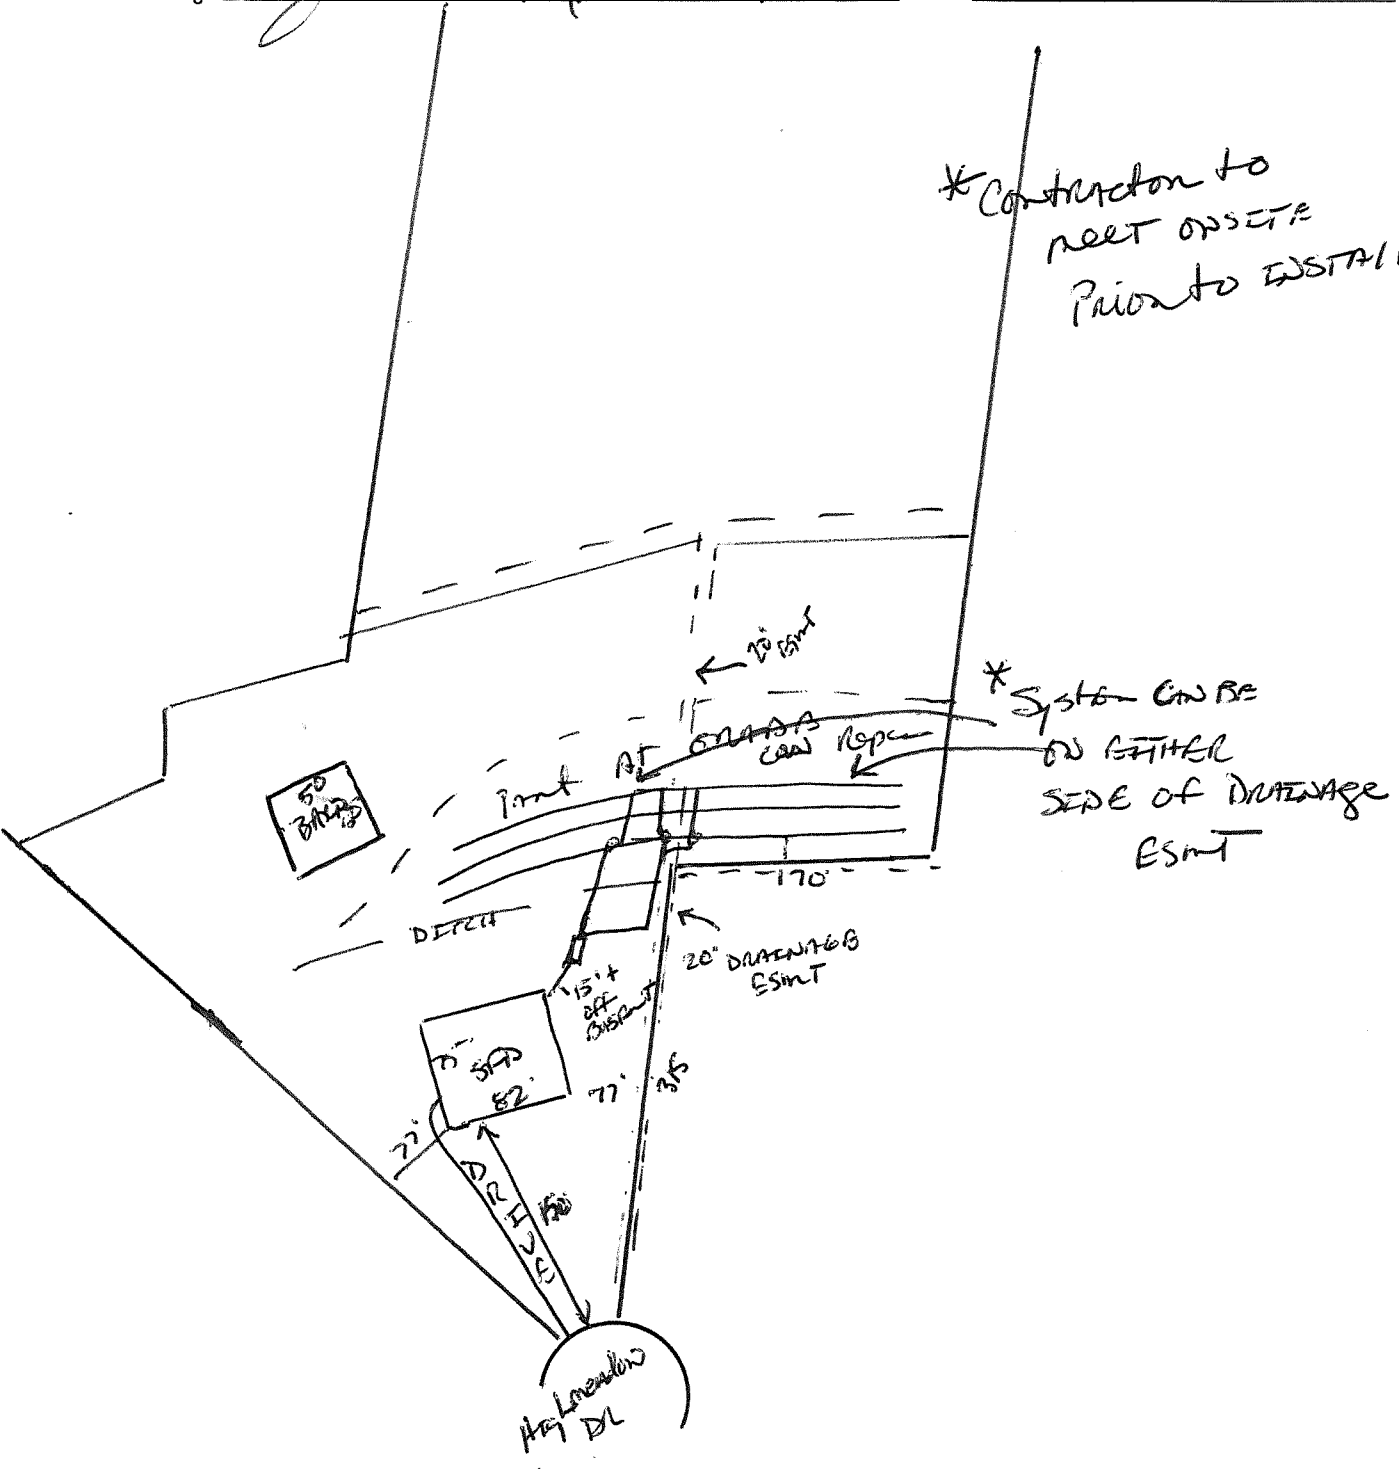 * Contractor to
meet ONSITE
Prior to INSTALL
20' Esmt
* System CAN BE
ON EITHER
SIDE of DRAINAGE
ESmT
AT GRADE
CAN Repair
50
DITCH
170'
20' DRAINAGE
ESmT
15'+
off
75'
SFD
82'
77'
315
77'
DRIVE
150
Highmeadow
DR